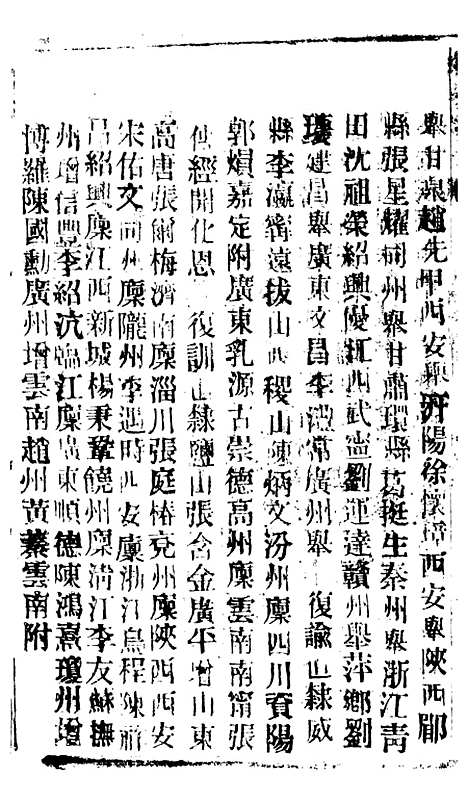 舉甘泉趙先甲西安舉汧陽徐懷璋西安舉陝西郿
縣張星耀同州舉甘肅環縣葛挺生秦州舉浙江青
田沈祖榮紹興優江西武寧劉運達贛州舉萍鄉劉
瓊建昌舉廣東文昌李澧常廣州舉 復諭直隸威
縣李瀛寧遠拔山西稷山陳炳文汾州廩四川資陽
郭熉嘉定附廣東乳源古崇德高州廩雲南南甯張
仲經開化恩 復訓直隸鹽山張含金廣平增山東
高唐張爾梅濟南廩淄川張庭椿兗州廩陝西西安
宋佑文同州廩隴州李遇時西安廩浙江烏程陳
呂紹興廩江西新城楊秉鞏饒州廩清江李友蘇撫
州增信豐李紹沆臨江廩廣東順德陳鴻熹瓊州增
博羅陳國勳廣州增雲南趙州黃蓁雲南附